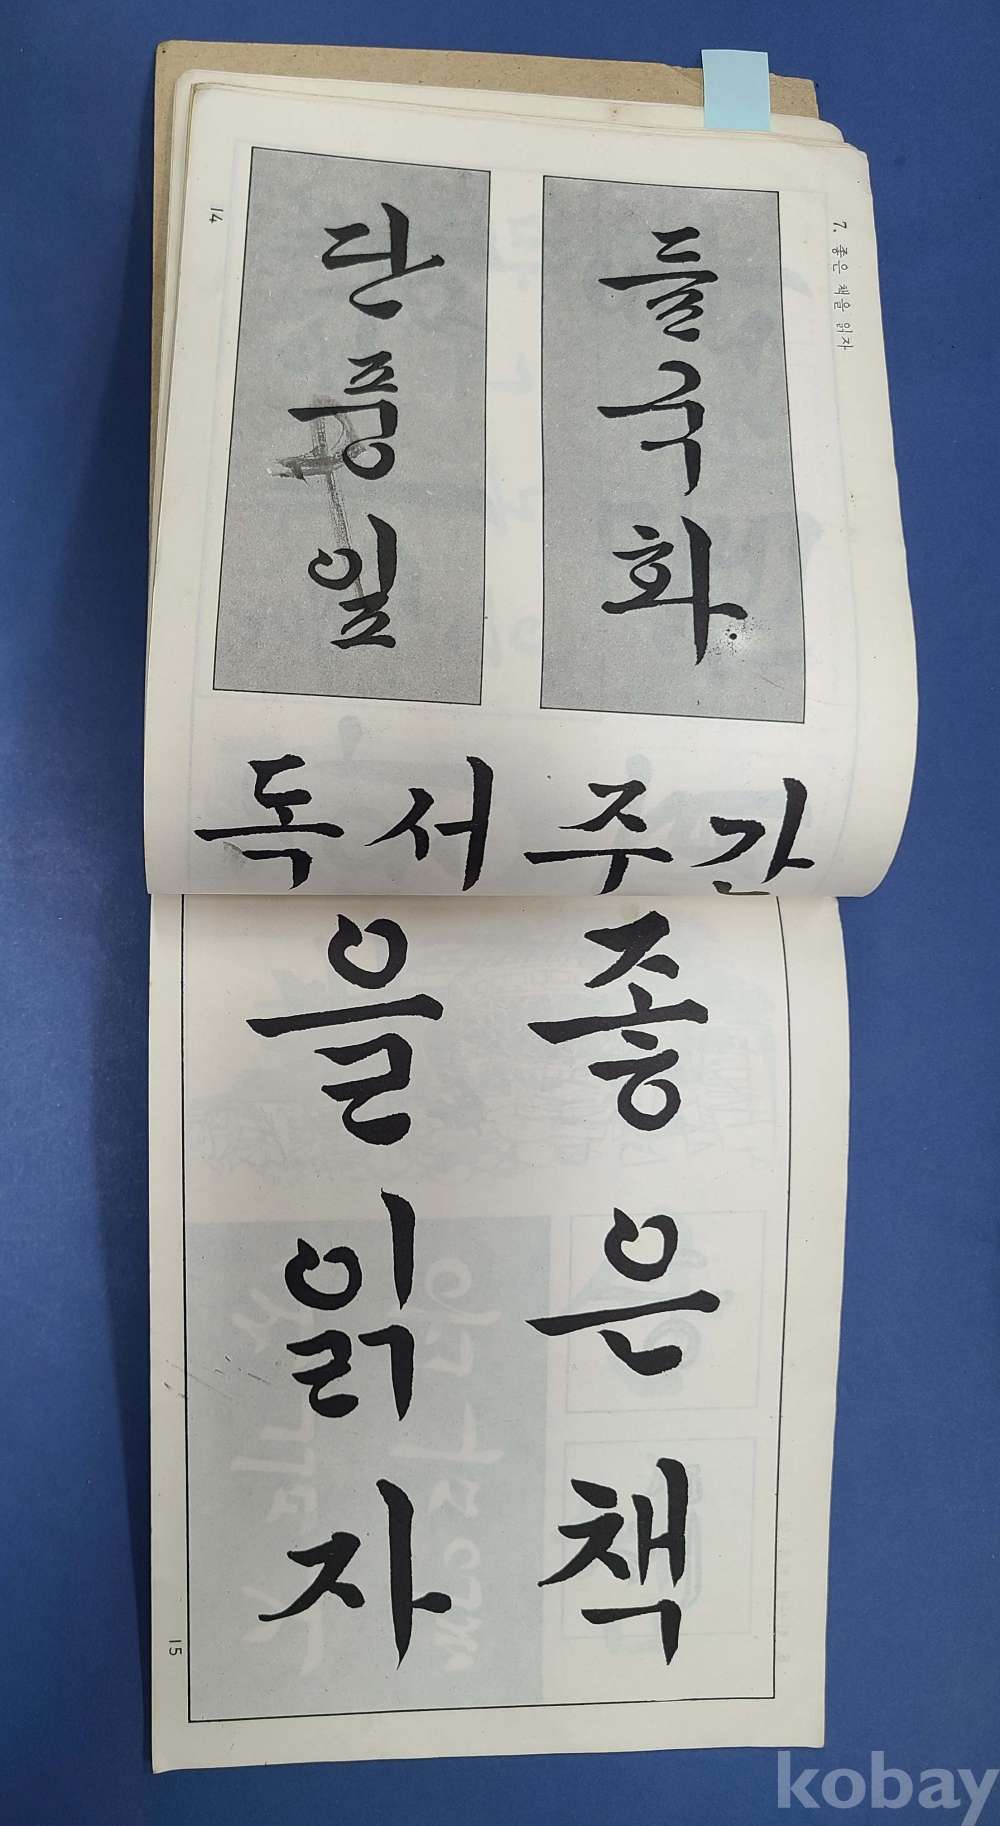 7. 좋은 책을 읽자
들국화
단풍잎
14
독서주간
좋은책
을읽자
15
kobay